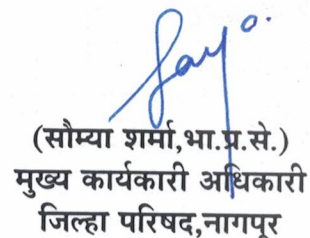 (सौम्या शर्मा,भा.प्र.से.)
मुख्य कार्यकारी अधिकारी
जिल्हा परिषद,नागपूर